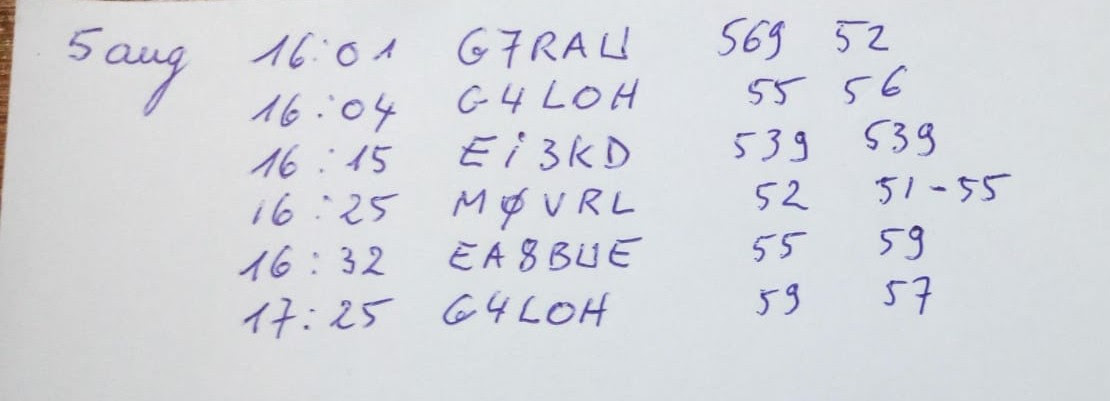 5 aug 16:01 G7RAU 569 52
16:04 G4LOH 55 56
16:15 Ei3KD 539 539
16:25 MØVRL 52 51-55
16:32 EA8BUE 55 59
17:25 G4LOH 59 57